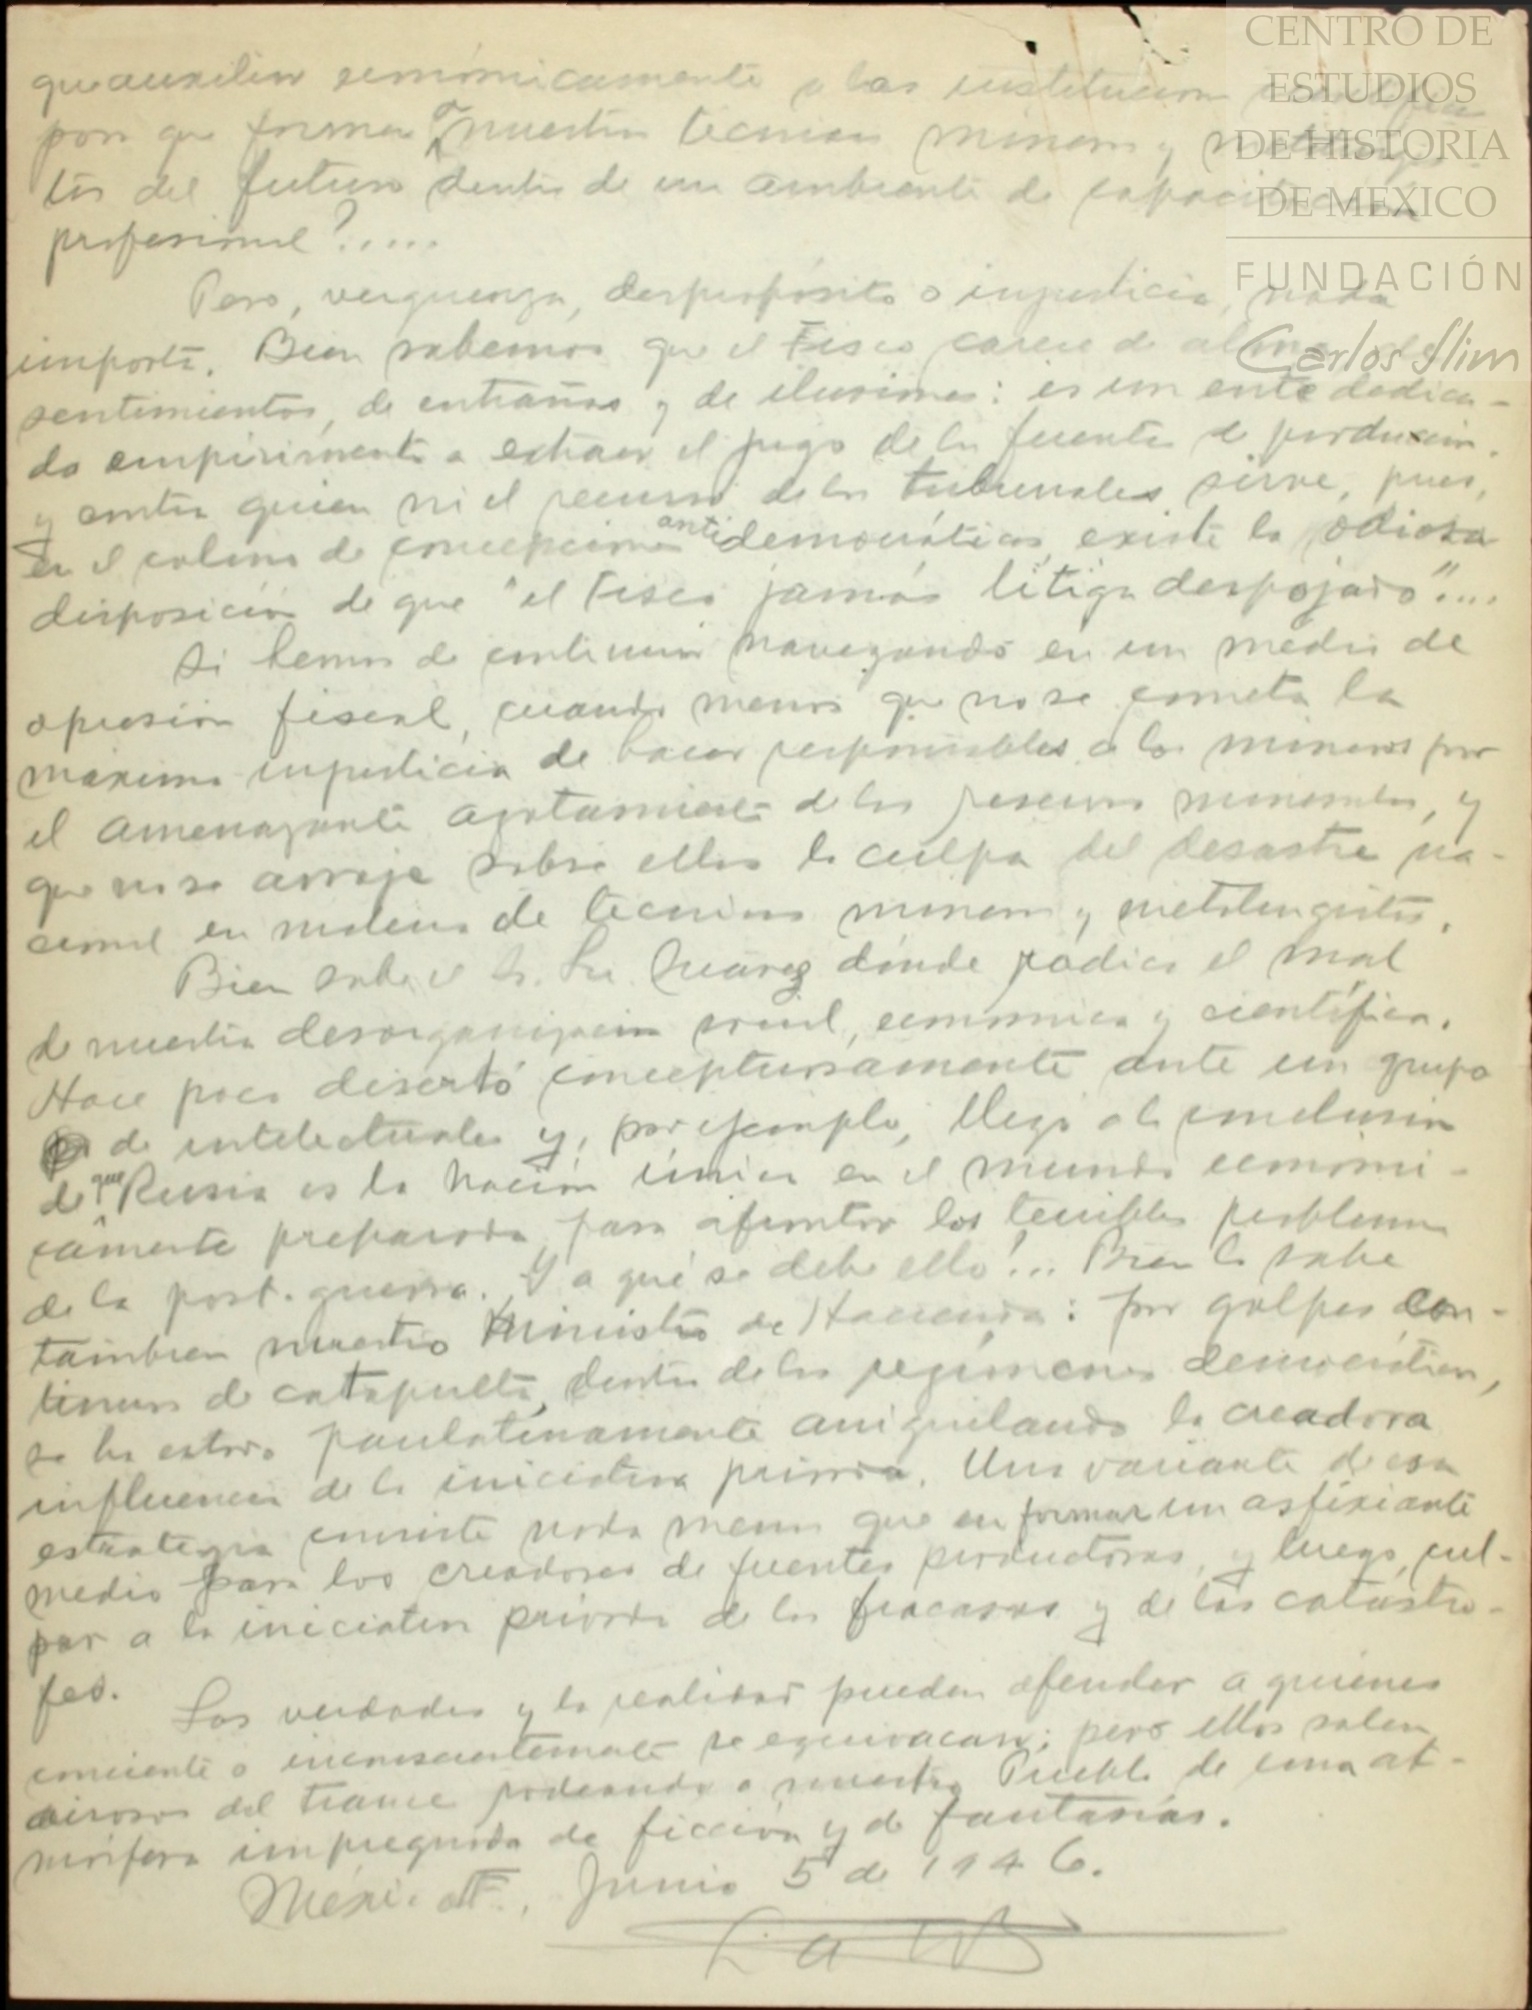 que auxilien económicamente a las institucion
pon que forman a nuestros tecnicos mineros y metalurgis-
tas del futuro dentro de un ambiente de capacitación
profesional?.....
Pero, verguenza, desproposito o injusticia, nada
importa. Bien sabemos que el Fisco carece de alma, de
sentimientos, de entrañas y de ilusiones: es un ente dedica-
do empirimente a extraer el jugo de la fuente de produccion.
y contra quien ni el recurso de los tribunales sirve, pues,
en el colmo de concepciones antidemocráticas, existe la odiosa
disposición de que "el Fisco jamás litiga despojado"....
Si hemos de continuar navegando en un medio de
opresión fiscal, cuando menos que no se cometa la
maxima injusticia de hacer responsables a los mineros por
el amenazante agotamiento de las reservas minerales, y
que no se arroje sobre ellos la culpa del desastre na-
cional en materia de tecnicos mineros y metalurgistas.
Bien sabe el Sr. Lic. Suarez dónde radica el mal
de nuestra desorganizacion social, economica y científica.
Hace poco disertó conceptuosamente ante un grupo
de intelectuales y, por ejemplo, llegó a la conclusion
de que Rusia es la Nación única en el mundo economi-
camente preparada para afrontar los terribles problemas
de la post-guerra. Y a qué se debe ello?... Bien lo sabe
tambien nuestro Ministro de Hacienda: por golpes con-
tinuos de catapulta, dentro de los regimenes democráticos,
se ha estado paulatinamente aniquilando la creadora
influencia de la iniciativa privada. Una variante de esa
estrategia consiste nada menos que en formar un asfixiante
medio para los creadores de fuentes productoras, y luego, cul-
par a la iniciativa privada de los fracasos y de las catástro-
fes.
Las verdades y la realidad pueden ofender a quienes
conciente o inconscientemente se equivocan; pero ellos salen
airosos del trance rodeando a nuestro Pueblo de una at-
mósfera impregnada de ficción y de fantasías.
Méxi. DF., Junio 5 de 1946.
CENTRO DE
ESTUDIOS
DE HISTORIA
DE MÉXICO
FUNDACIÓN
Carlos Slim